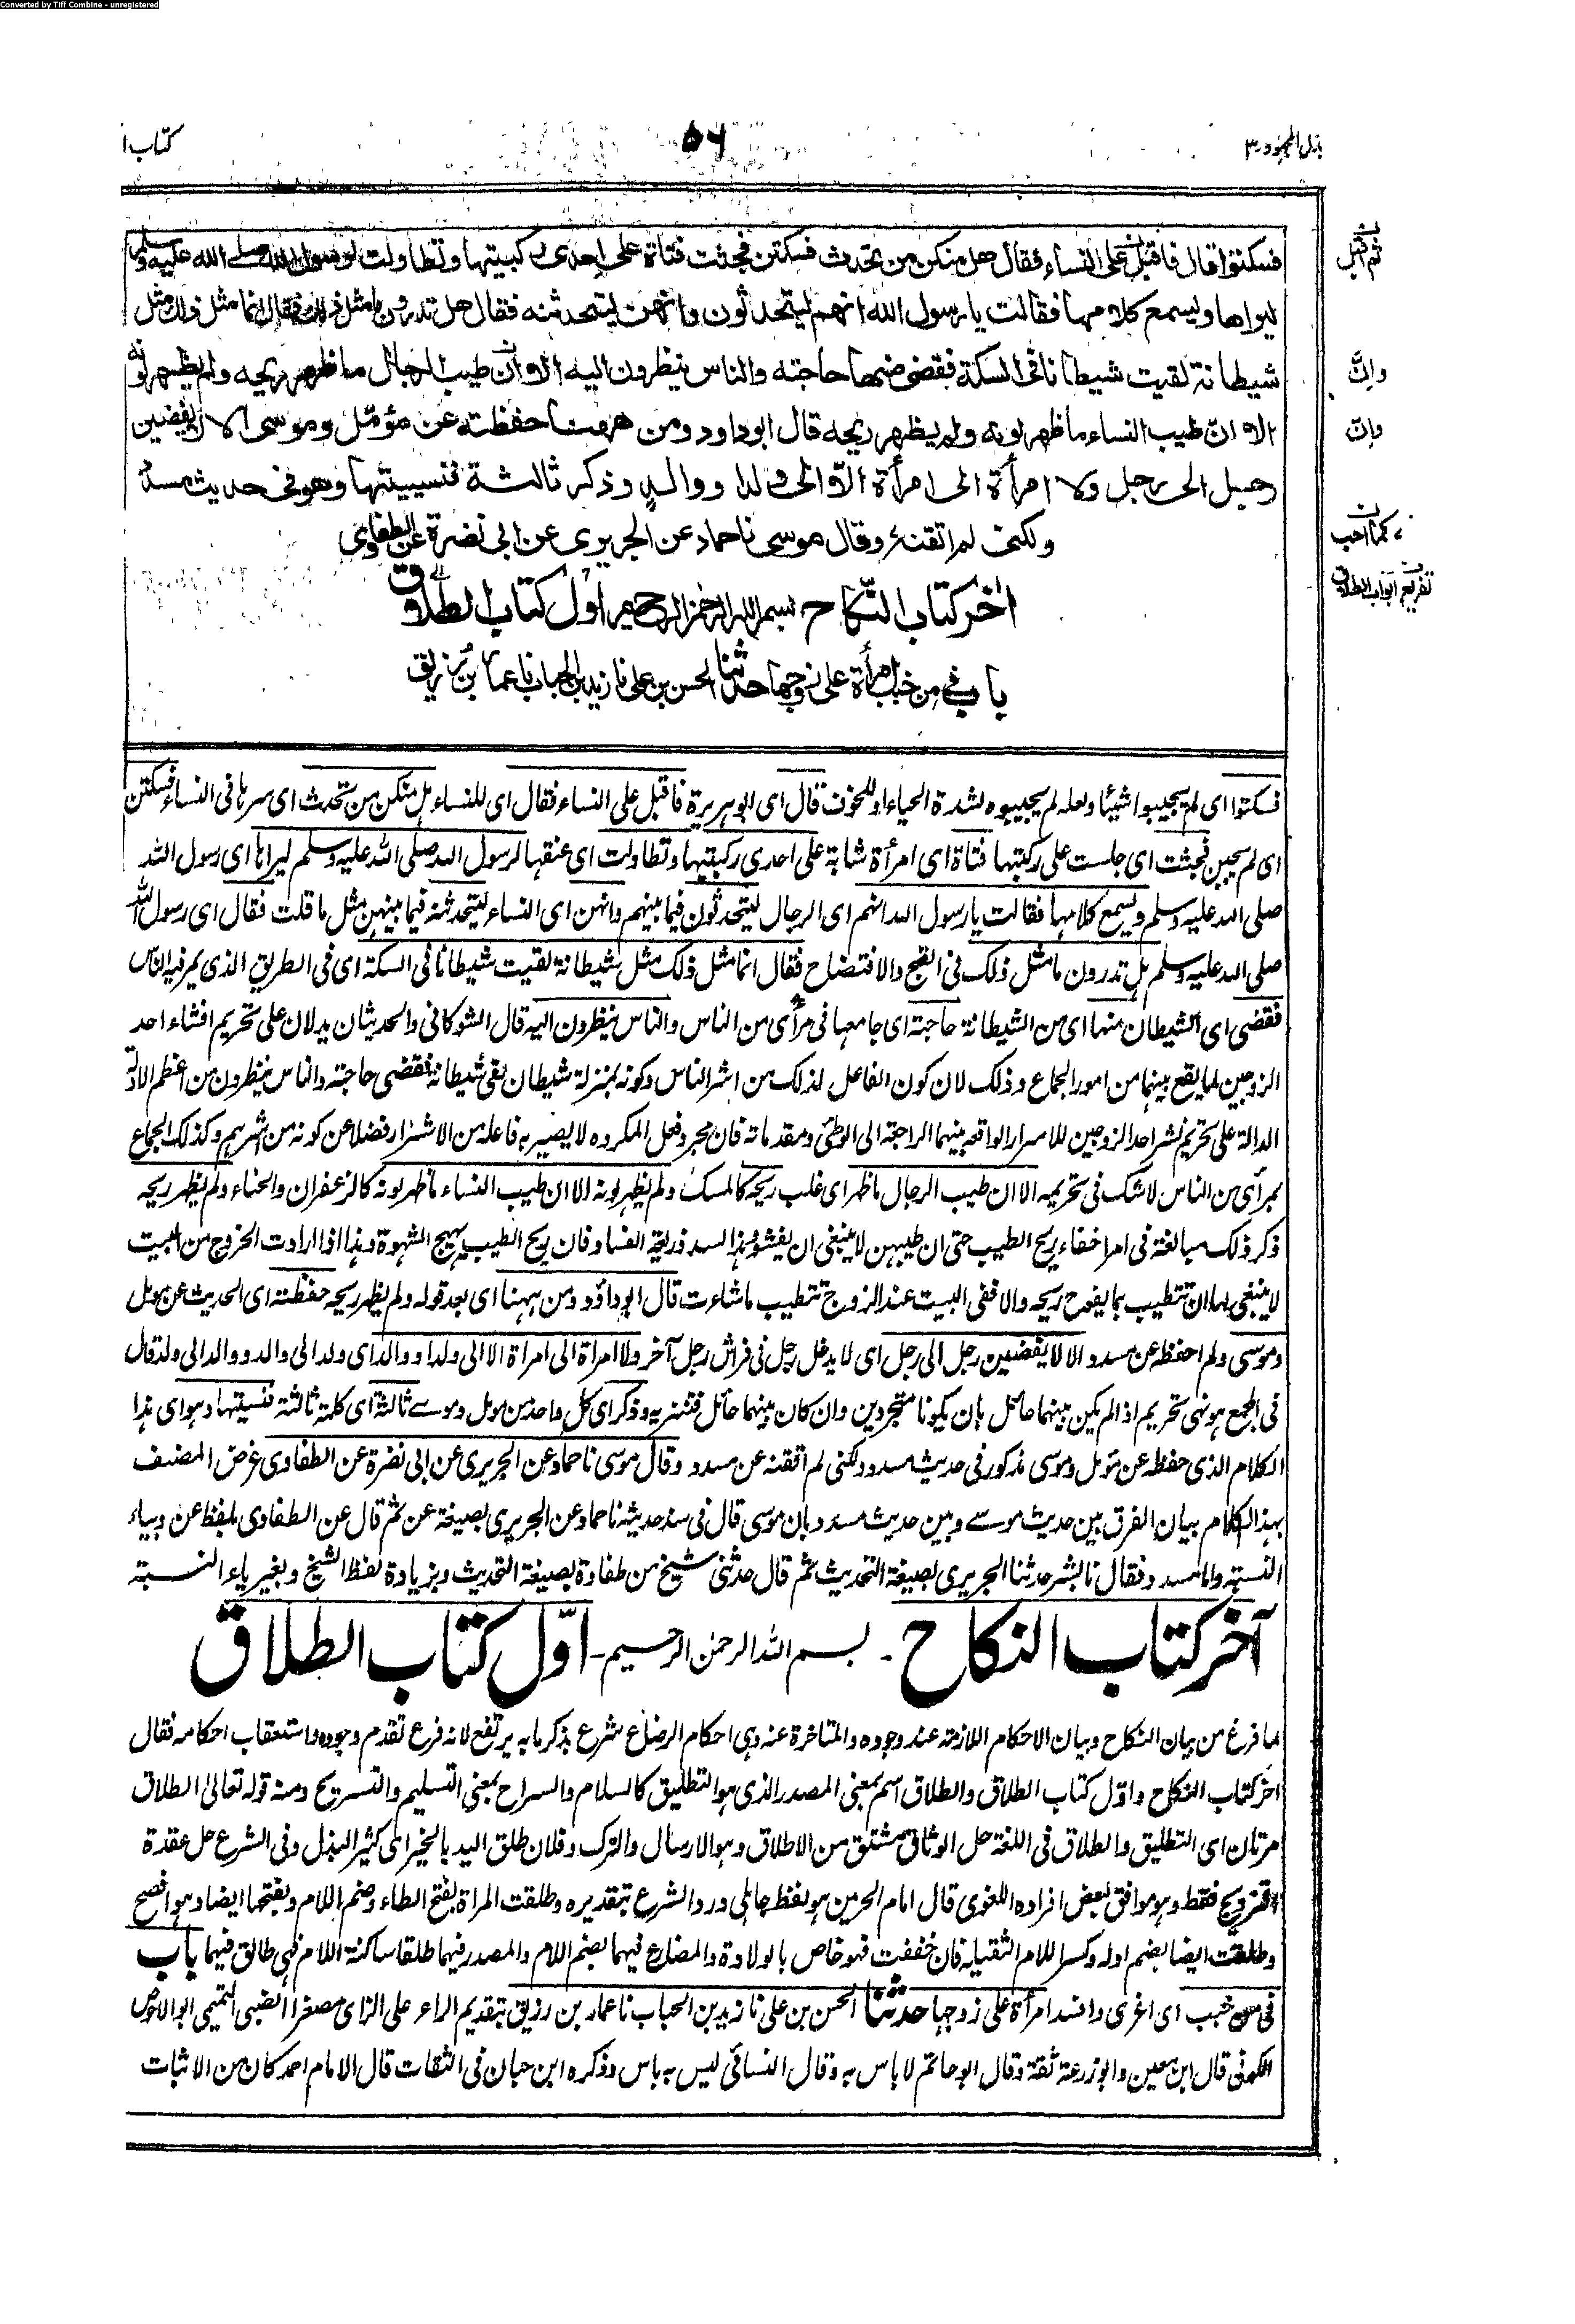 Converted by Tiff Combine - unregistered
بذل المجهود ٣
٥٦
كتاب ا
فسكتوا قال فاقبل على النساء فقال هل منكن من تحدث فسكتن فجثت فتاة على احدى ركبتيها وتطاولت لرسول الله صلى الله عليه وسلم
ليراها ويسمع كلامها فقالت يا رسول الله انهم ليتحدثون وانهن ليتحدثنه فقال هل تدرون ما مثل ذلك فقال انما مثل ذلك مثل
شيطانة لقيت شيطانا فى السكة فقضى منها حاجته والناس ينظرون اليه الا وان طيب الرجال ما ظهر ريحه ولم يظهر لونه
الا ان طيب النساء ما ظهر لونه ولم يظهر ريحه قال ابوداود ومن ههنا حفظته عن مؤمل وموسى الا لا يفضين
رجل الى رجل ولا امرأة الى امرأة الا الى ولد او والد وذكر ثالثة فنسيتها وهو فى حديث مسدد
ولكنى لم اتقنه وقال موسى نا حماد عن الجريرى عن ابى نضرة عن الطفاوى
اخر كتاب النكاح بسم الله الرحمن الرحيم اول كتاب الطلاق
باب فى من خبب امرأة على زوجها حدثنا الحسن بن على نا زيد بن الحباب نا عمار بن رزيق
ثم اقبل
وانَّ
وانّ
تفريع ابواب الطلاق
فسكتوا اى لم يجيبوا شيئا ولعله لم يجيبوه لشدة الحياء او للخوف قال اى ابو هريرة فاقبل على النساء فقال اى للنساء هل منكن من تحدث اى سرها فى النساء فسكتن
اى لم يجبن فجثت اى جلست على ركبتها فتاة اى امرأة شابة على احدى ركبتيها وتطاولت اى عنقها لرسول الله صلى الله عليه وسلم ليراها اى رسول الله
صلى الله عليه وسلم ويسمع كلامها فقالت يا رسول الله انهم اى الرجال ليتحدثون فيما بينهم وانهن اى النساء ليتحدثنه فيما بينهن مثل ما قلت فقال اى رسول الله
صلى الله عليه وسلم هل تدرون ما مثل ذلك فى القبح والافتضاح فقال انما مثل ذلك مثل شيطانة لقيت شيطانا فى السكة اى فى الطريق الذى يمر فيه الناس
فقضى اى الشيطان منها اى من الشيطانة حاجته اى جامعها فى مرأى من الناس والناس ينظرون اليه قال الشوكانى والحديثان يدلان على تحريم افشاء احد
الزوجين لما يقع بينهما من امور الجماع وذلك لان كون الفاعل لذلك من اشر الناس وكونه بمنزلة شيطان لقى شيطانة فقضى حاجته والناس ينظرون من اعظم الادلة
الدالة على تحريم نشر احد الزوجين للاسرار الواقعة بينهما الراجعة الى الوطئ ومقدماته فان مجرد فعل المكروه لا يصير به فاعله من الاشرار فضلا عن كونه من اشرهم وكذلك الجماع
بمرأى من الناس لا شك فى تحريمه الا ان طيب الرجال ما ظهر اى غلب ريحه كالمسك ولم يظهر لونه الا ان طيب النساء ما ظهر لونه كالزعفران والحناء ولم يظهر ريحه
ذكر ذلك مبالغة فى امر اخفاء ريح الطيب حتى ان طيبهن لا ينبغى ان يفشو وهذا لسد ذريعة الفساد فان ريح الطيب يهيج الشهوة وهذا اذا ارادت الخروج من البيت
لا ينبغى لها ان تتطيب بما يفوح ريحه والا ففى البيت عند الزوج تتطيب ما شاءت قال ابوداؤد ومن ههنا اى بعد قوله ولم يظهر ريحه حفظته اى الحديث عن مؤمل
وموسى ولم احفظه عن مسدد الا لا يفضين رجل الى رجل اى لا يدخل رجل فى فراش رجل آخر ولا امرأة الى امرأة الا الى ولد او والد اى ولد الى والد ووالد الى ولد قال
فى المجمع هو نهى تحريم اذا لم يكن بينهما حائل بان يكونا متجردين وان كان بينهما حائل فتنزيه وذكر اى كل واحد من مؤمل وموسى ثالثة اى كلمة ثالثة فنسيتها وهو اى هذا
الكلام الذى حفظه عن مؤمل وموسى مذكور فى حديث مسدد ولكنى لم اتقنه عن مسدد وقال موسى نا حماد عن الجريرى عن ابى نضرة عن الطفاوى غرض المصنف
بهذا الكلام بيان الفرق بين حديث موسى وبين حديث مسدد بان موسى قال فى سند حديثه نا حماد عن الجريرى بصيغة عن ثم قال عن الطفاوى بلفظ عن وبياء
النسبة واما مسدد فقال نا بشر حدثنا الجريرى بصيغة التحديث ثم قال حدثنى شيخ من طفاوة بصيغة التحديث وبزيادة لفظ الشيخ وبغير ياء النسبة
آخر كتاب النكاح - بسم الله الرحمن الرحيم - اوّل كتاب الطلاق
لما فرغ من بيان النكاح وبيان الاحكام اللازمة عند وجوده والمتاخرة عنه وهى احكام الرضاع شرع بذكر ما به يرتفع لانه فرع تقدم وجوده واستعقاب احكامه فقال
آخر كتاب النكاح واوّل كتاب الطلاق والطلاق اسم بمعنى المصدر الذى هو التطليق كالسلام والسراح بمعنى التسليم والتسريح ومنه قوله تعالى الطلاق
مرتان اى التطليق والطلاق فى اللغة حل الوثاق مشتق من الاطلاق وهو الارسال والترك وفلان طلق اليد بالخير اى كثير البذل وفى الشرع حل عقدة
التزويج فقط وهو موافق لبعض افراده اللغوى قال امام الحرمين هو لفظ جاهلى ورد الشرع بتقديره وطلقت المرأة بفتح الطاء وضم اللام وبفتحها ايضا وهو افصح
وطلقت ايضا بضم اوله وكسر اللام الثقيلة فان خففت فهو خاص بالولادة والمضارع فيهما بضم اللام والمصدر فيهما طلقا ساكنة اللام فهى طالق فيهما باب
فى من خبب اى اغرى وافسد امرأة على زوجها حدثنا الحسن بن على نا زيد بن الحباب نا عمار بن رزيق بتقديم الراء على الزاى مصغرا الضبى التميمى ابو الاحوص
الكوفى قال ابن معين وابو زرعة ثقة وقال ابو حاتم لا باس به وقال النسائى ليس به باس وذكره ابن حبان فى الثقات قال الامام احمد كان من الاثبات